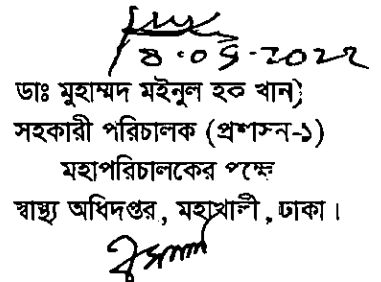 ডাঃ মুহাম্মদ মইনুল হক খান)
সহকারী পরিচালক (প্রশাসন-১)
মহাপরিচালকের পক্ষে
স্বাস্থ্য অধিদপ্তর, মহাখালী, ঢাকা।